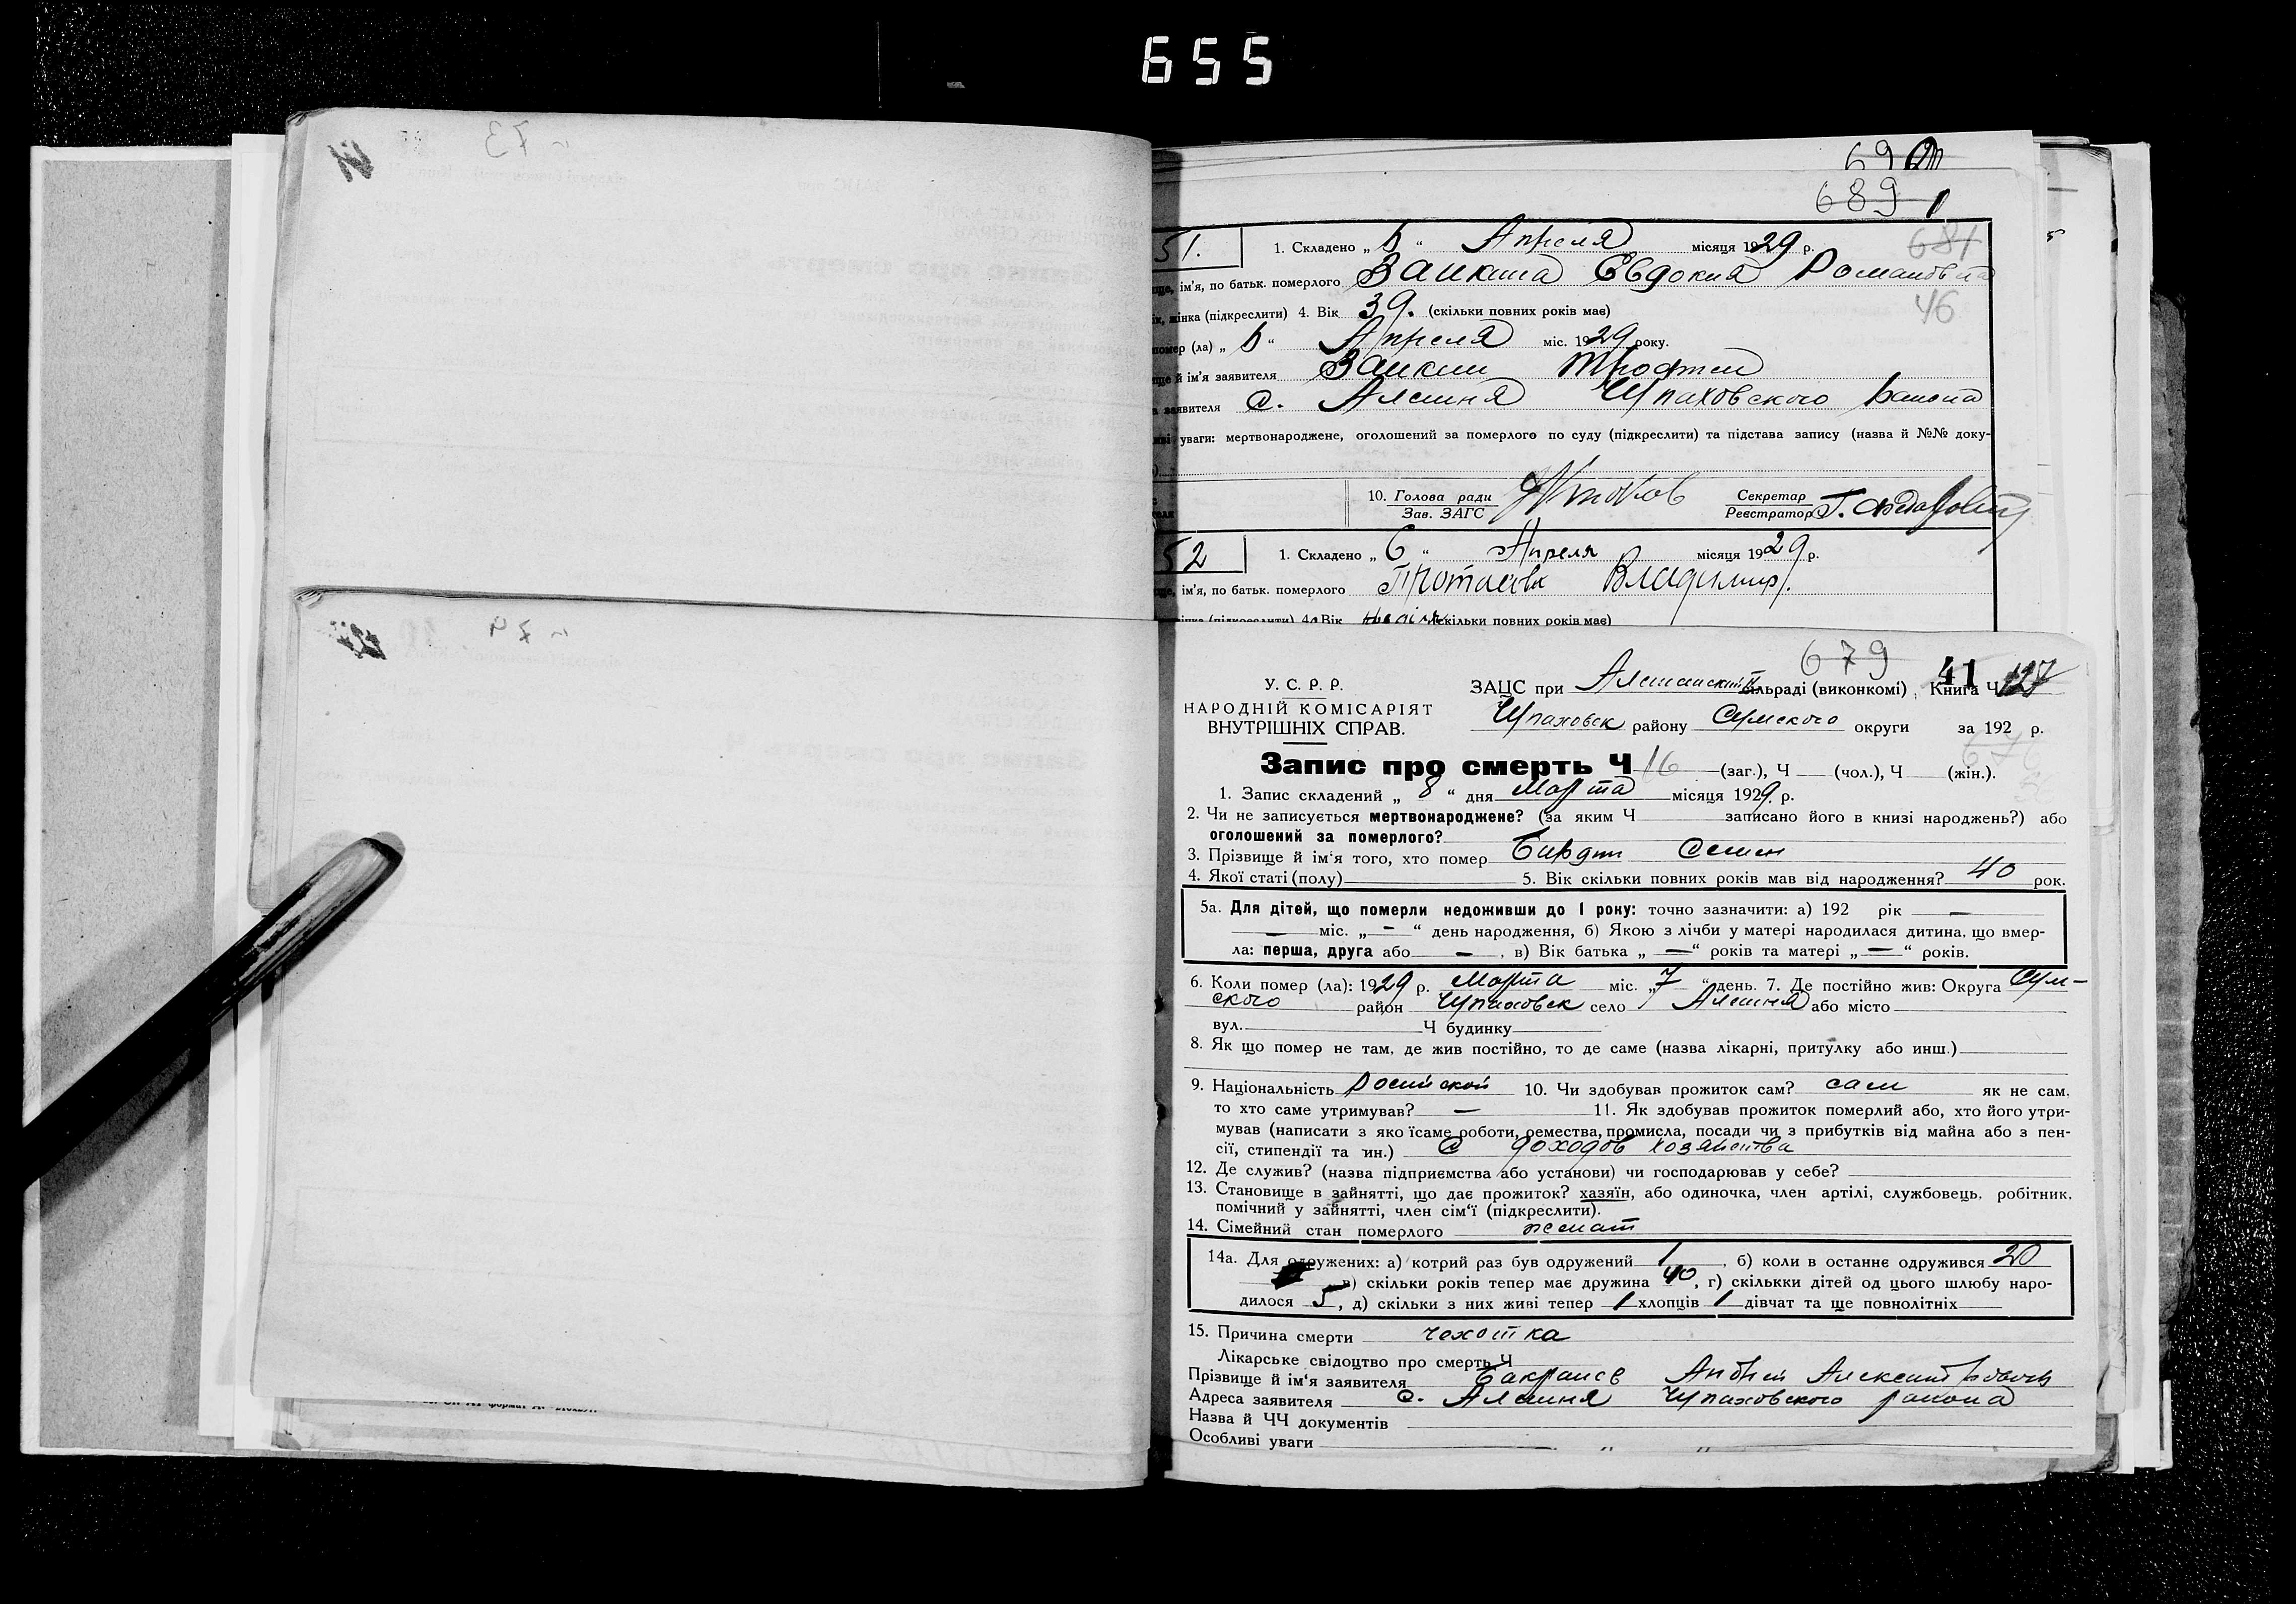 655
692
689
51.
1. Складено „ „ Апреля місяця 1929 р.
684
ім'я, по батьк. померлого Заикина Евдокия Романовна
46
жінка (підкреслити) 4. Вік 39. (скільки повних років має)
помер (ла) „ “ Апреля міс. 1929 року.
й ім'я заявителя Заикин Трофим
заявителя с. Алешня Чупаховского
уваги: мертвонароджене, оголошений за померлого по суду (підкреслити) та підстава запису (назва й №№ доку-
10. Голова ради
Зав. ЗАГС
Секретар
Реєстратор
52
1. Складено „ 6 “ Апреля місяця 1929 р.
ім'я, по батьк. померлого Владимир.
(підкреслити) Вік (скільки повних років має)
679
41 127
У. С. Р. Р.
НАРОДНІЙ КОМІСАРІЯТ
ВНУТРІШНІХ СПРАВ.
ЗАЦС при сільраді (виконкомі), Книга Ч
Чупаховск району Сумского округи за 192 р.
Запис про смерть Ч 16 (заг.), Ч (чол.), Ч (жін.).
1. Запис складений „ 8 “ дня Марта місяця 1929. р.
2. Чи не записується мертвонароджене? (за яким Ч записано його в книзі народжень?) або
оголошений за померлого?
3. Прізвище й ім'я того, хто помер Семен
4. Якої статі (полу) 5. Вік скільки повних років мав від народження? 40 рок.
5а. Для дітей, що померли недоживши до 1 року: точно зазначити: а) 192 рік —
— міс. „ — “ день народження, б) Якою з лічби у матері народилася дитина, що вмер-
ла: перша, друга або — , в) Вік батька „ — “ років та матері „ — “ років.
6. Коли помер (ла): 1929 р. Марта міс. „7 “ день. 7. Де постійно жив: Округа Сум-
ского район Чупаховск село Алешня або місто
вул. Ч будинку
8. Як що помер не там, де жив постійно, то де саме (назва лікарні, притулку або инш.)
9. Національність 10. Чи здобував прожиток сам? сам як не сам,
то хто саме утримував? — 11. Як здобував прожиток померлий або, хто його утри-
мував (написати з яко їсаме роботи, ремества, промисла, посади чи з прибутків від майна або з пен-
сії, стипендії та ин.) С доходов хозяйства
12. Де служив? (назва підприємства або установи) чи господарював у себе?
13. Становище в зайнятті, що дає прожиток? хазяїн, або одиночка, член артілі, службовець, робітник,
помічний у зайнятті, член сім'ї (підкреслити).
14. Сімейний стан померлого женат
14а. Для одружених: а) котрий раз був одружений 1 , б) коли в останнє одружився 20
в) скільки років тепер має дружина 40, г) скількки дітей од цього шлюбу наро-
дилося 5, д) скільки з них живі тепер 1 хлопців 1 дівчат та ще повнолітніх
15. Причина смерти чахотка
Лікарське свідоцтво про смерть Ч
Прізвище й ім'я заявителя
Адреса заявителя с. Алешня Чупаховского района
Назва й ЧЧ документів
Особливі уваги „ „